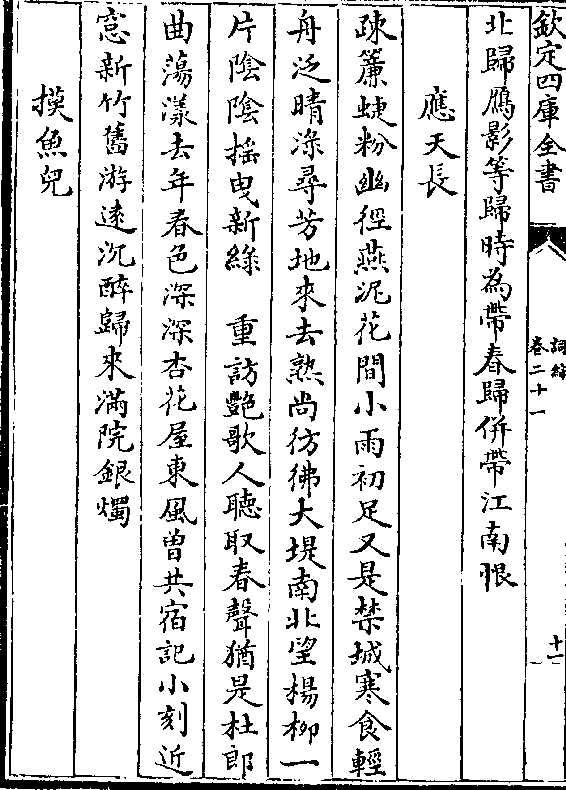 欽定四庫全書
詞綜
卷二十一
十一
北歸鴈影等歸時為帶春歸併帶江南恨
應天長
疎簾蜨粉幽徑燕泥花間小雨初足又是禁城寒食輕
舟泛晴渌尋芳地來去熟尚彷彿大堤南北望楊柳一
片陰陰摇曳新緑　重訪艷歌人聽取春聲猶是杜郎
曲蕩漾去年春色深深杏花屋東風曽共宿記小刻近
窓新竹舊游逺沉醉歸來滿院銀燭
摸魚兒